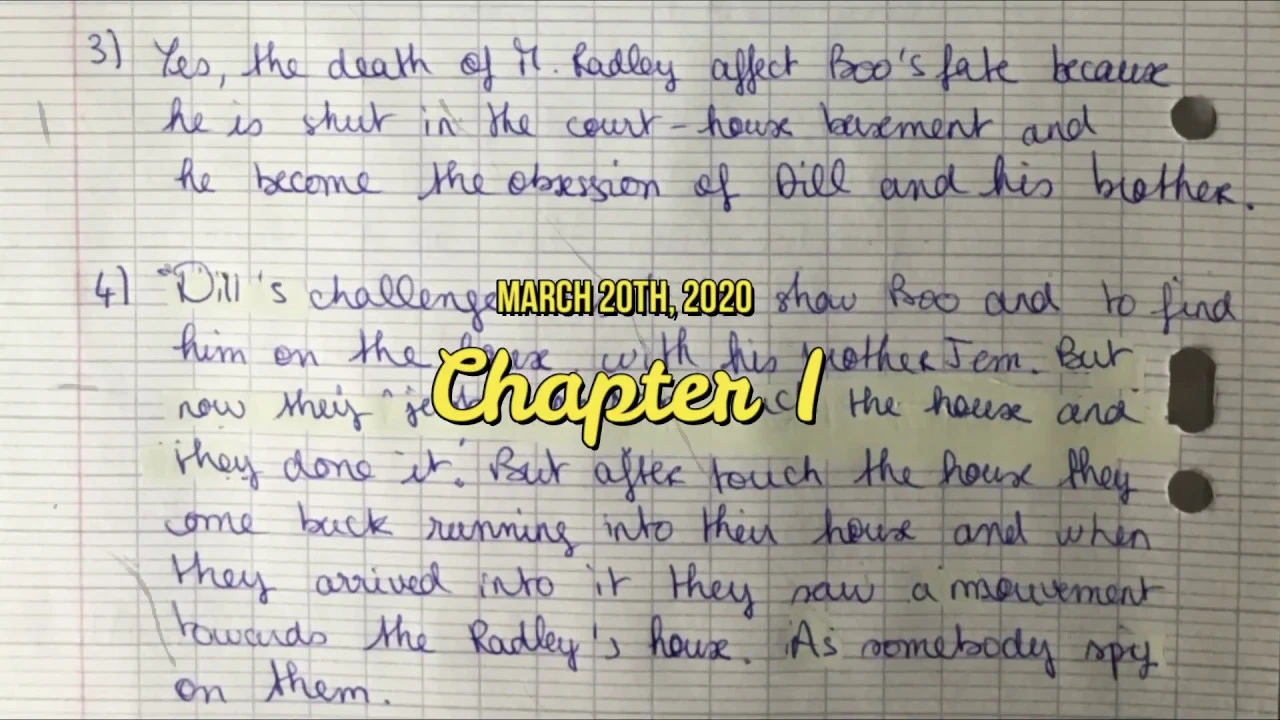 3) Yes, the death of M. Radley affect Boo's fate because
he is shut in the court-house basement and
he become the obsession of Dill and his brother.
4) "Dill's challenge show Boo and to find
MARCH 20TH, 2020
him on the house with his brother Jem. But
Chapter 1
now they the house and
they done it". But after touch the house they
come back running into their house and when
they arrived into it they saw a mouvement
towards the Radley's house. As somebody spy
on them.